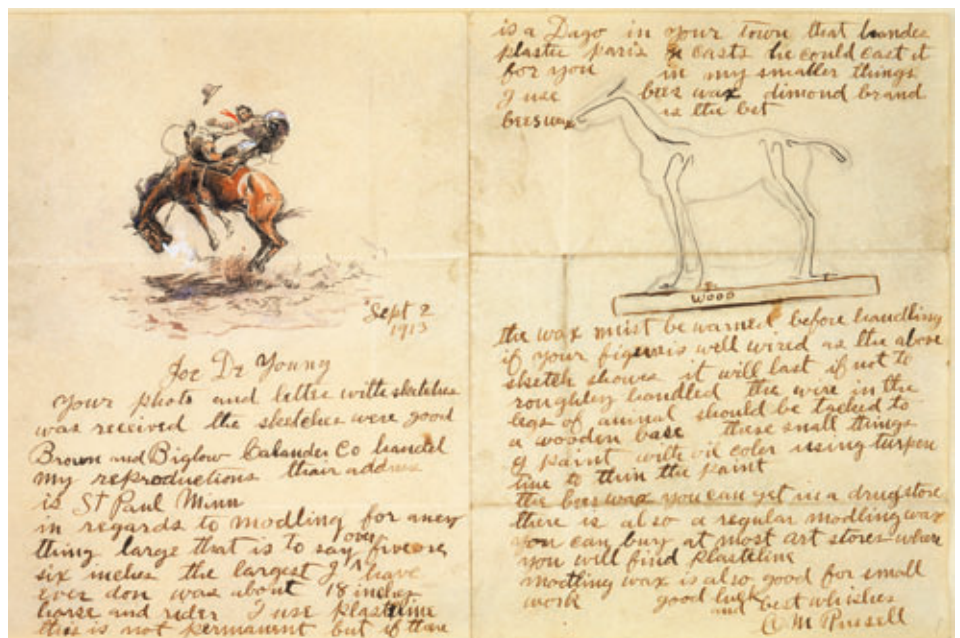 Sept 2
1913
Joe De Young
Your photo and letter with sketches
was received the sketches were good
Brown and Biglow Calander Co handel
my reproductions thair address
is St Paul Minn
in regards to modling for aney
thing large that is to say over five ore
six inches the largest I have
ever don was about 18 inches
horse and rider I use plasteline
this is not permanent but if thare
is a Dago in your town that handes
plastic paris casts he could cast it
for you in my smaller things
I use bees wax dimond brand
beeswax is the bet
WOOD
the wax must be warned before handling
if your figure is well wired as the above
sketch shows it will last if not to
roughley handled the wire in the
legs of animal should be tacked to
a wooden base these small things
I paint with oil color using turpen
tine to thin the paint
the beeswax you can get in a drugstore
there is also a regular modling wax
you can buy at most art stores where
you will find plasteline
modling wax is also good for small
work good luck
and best whishes
C M Russell